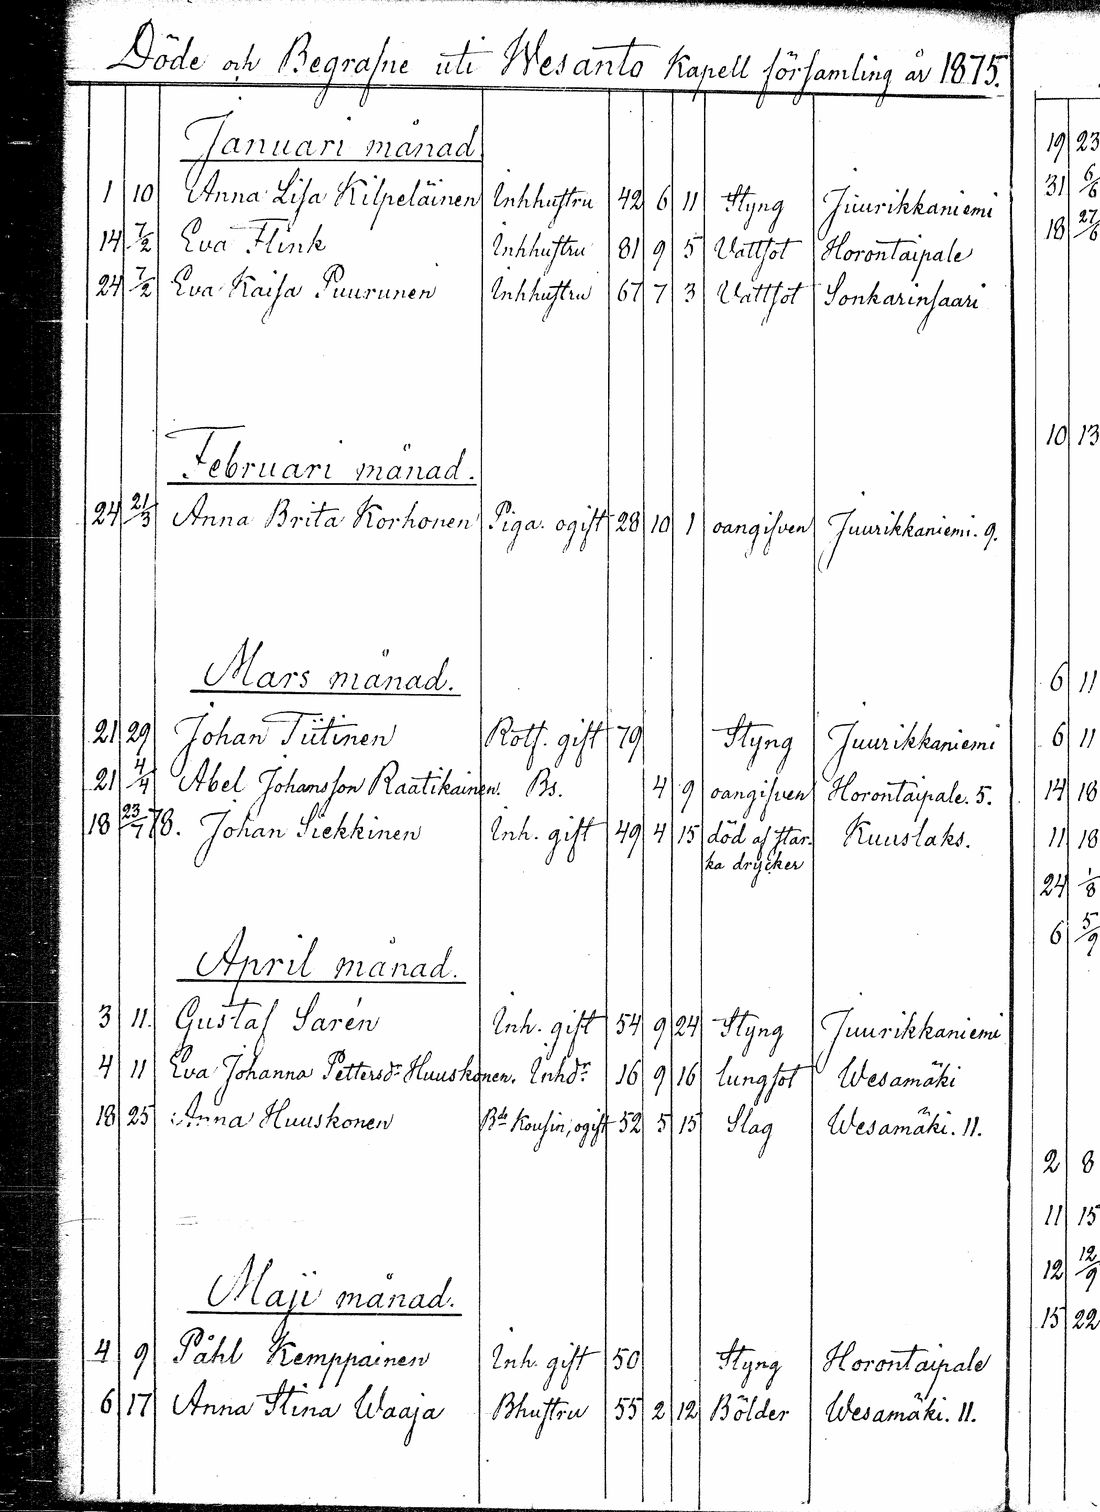 Döde och Begrafne uti Wesanto Kapell församling år 1875.
Januari månad
1 10 Anna Lisa Kilpeläinen Inhhustru 42 6 11 Styng Juurikkaniemi
14 7/2 Eva Flink Inhhustru 81 9 5 Vattsot Horontaipale
24 7/2 Eva Kaisa Puurunen Inhhustru 67 7 3 Vattsot Sonkarinsaari
Februari månad.
24 21/3 Anna Brita Korhonen Piga. ogift 28 10 1 oangifven Juurikkaniemi. 9.
Mars månad.
21 29 Johan Tiitinen Rotf. gift 79 Styng Juurikkaniemi
21 4/4 Abel Johansson Raatikainen. Bs. 4 9 oangifven Horontaipale. 5.
18 23/7 78. Johan Siekkinen Inh. gift 49 4 15 död af star-
ka drycker Kuuslaks.
April månad.
3 11. Gustaf Sarén Inh. gift 54 9 24 Styng Juurikkaniemi
4 11 Eva Johanna Pettersdr Huuskonen. Inhdr 16 9 16 lungsot Wesamäki
18 25 Anna Huuskonen Bds Kousin, ogift 52 5 15 Slag Wesamäki. 11.
Maji månad.
4 9 Påhl Kemppainen Inh. gift 50 Styng Horontaipale
6 17 Anna Stina Waaja Bhustru 55 2 12 Bölder Wesamäki. 11.
19 23
31 6/6
18 27/6
10 13
6 11
6 11
14 18
11 18
24 1/8
6 5/9
2 8
11 15
12 12/9
15 22